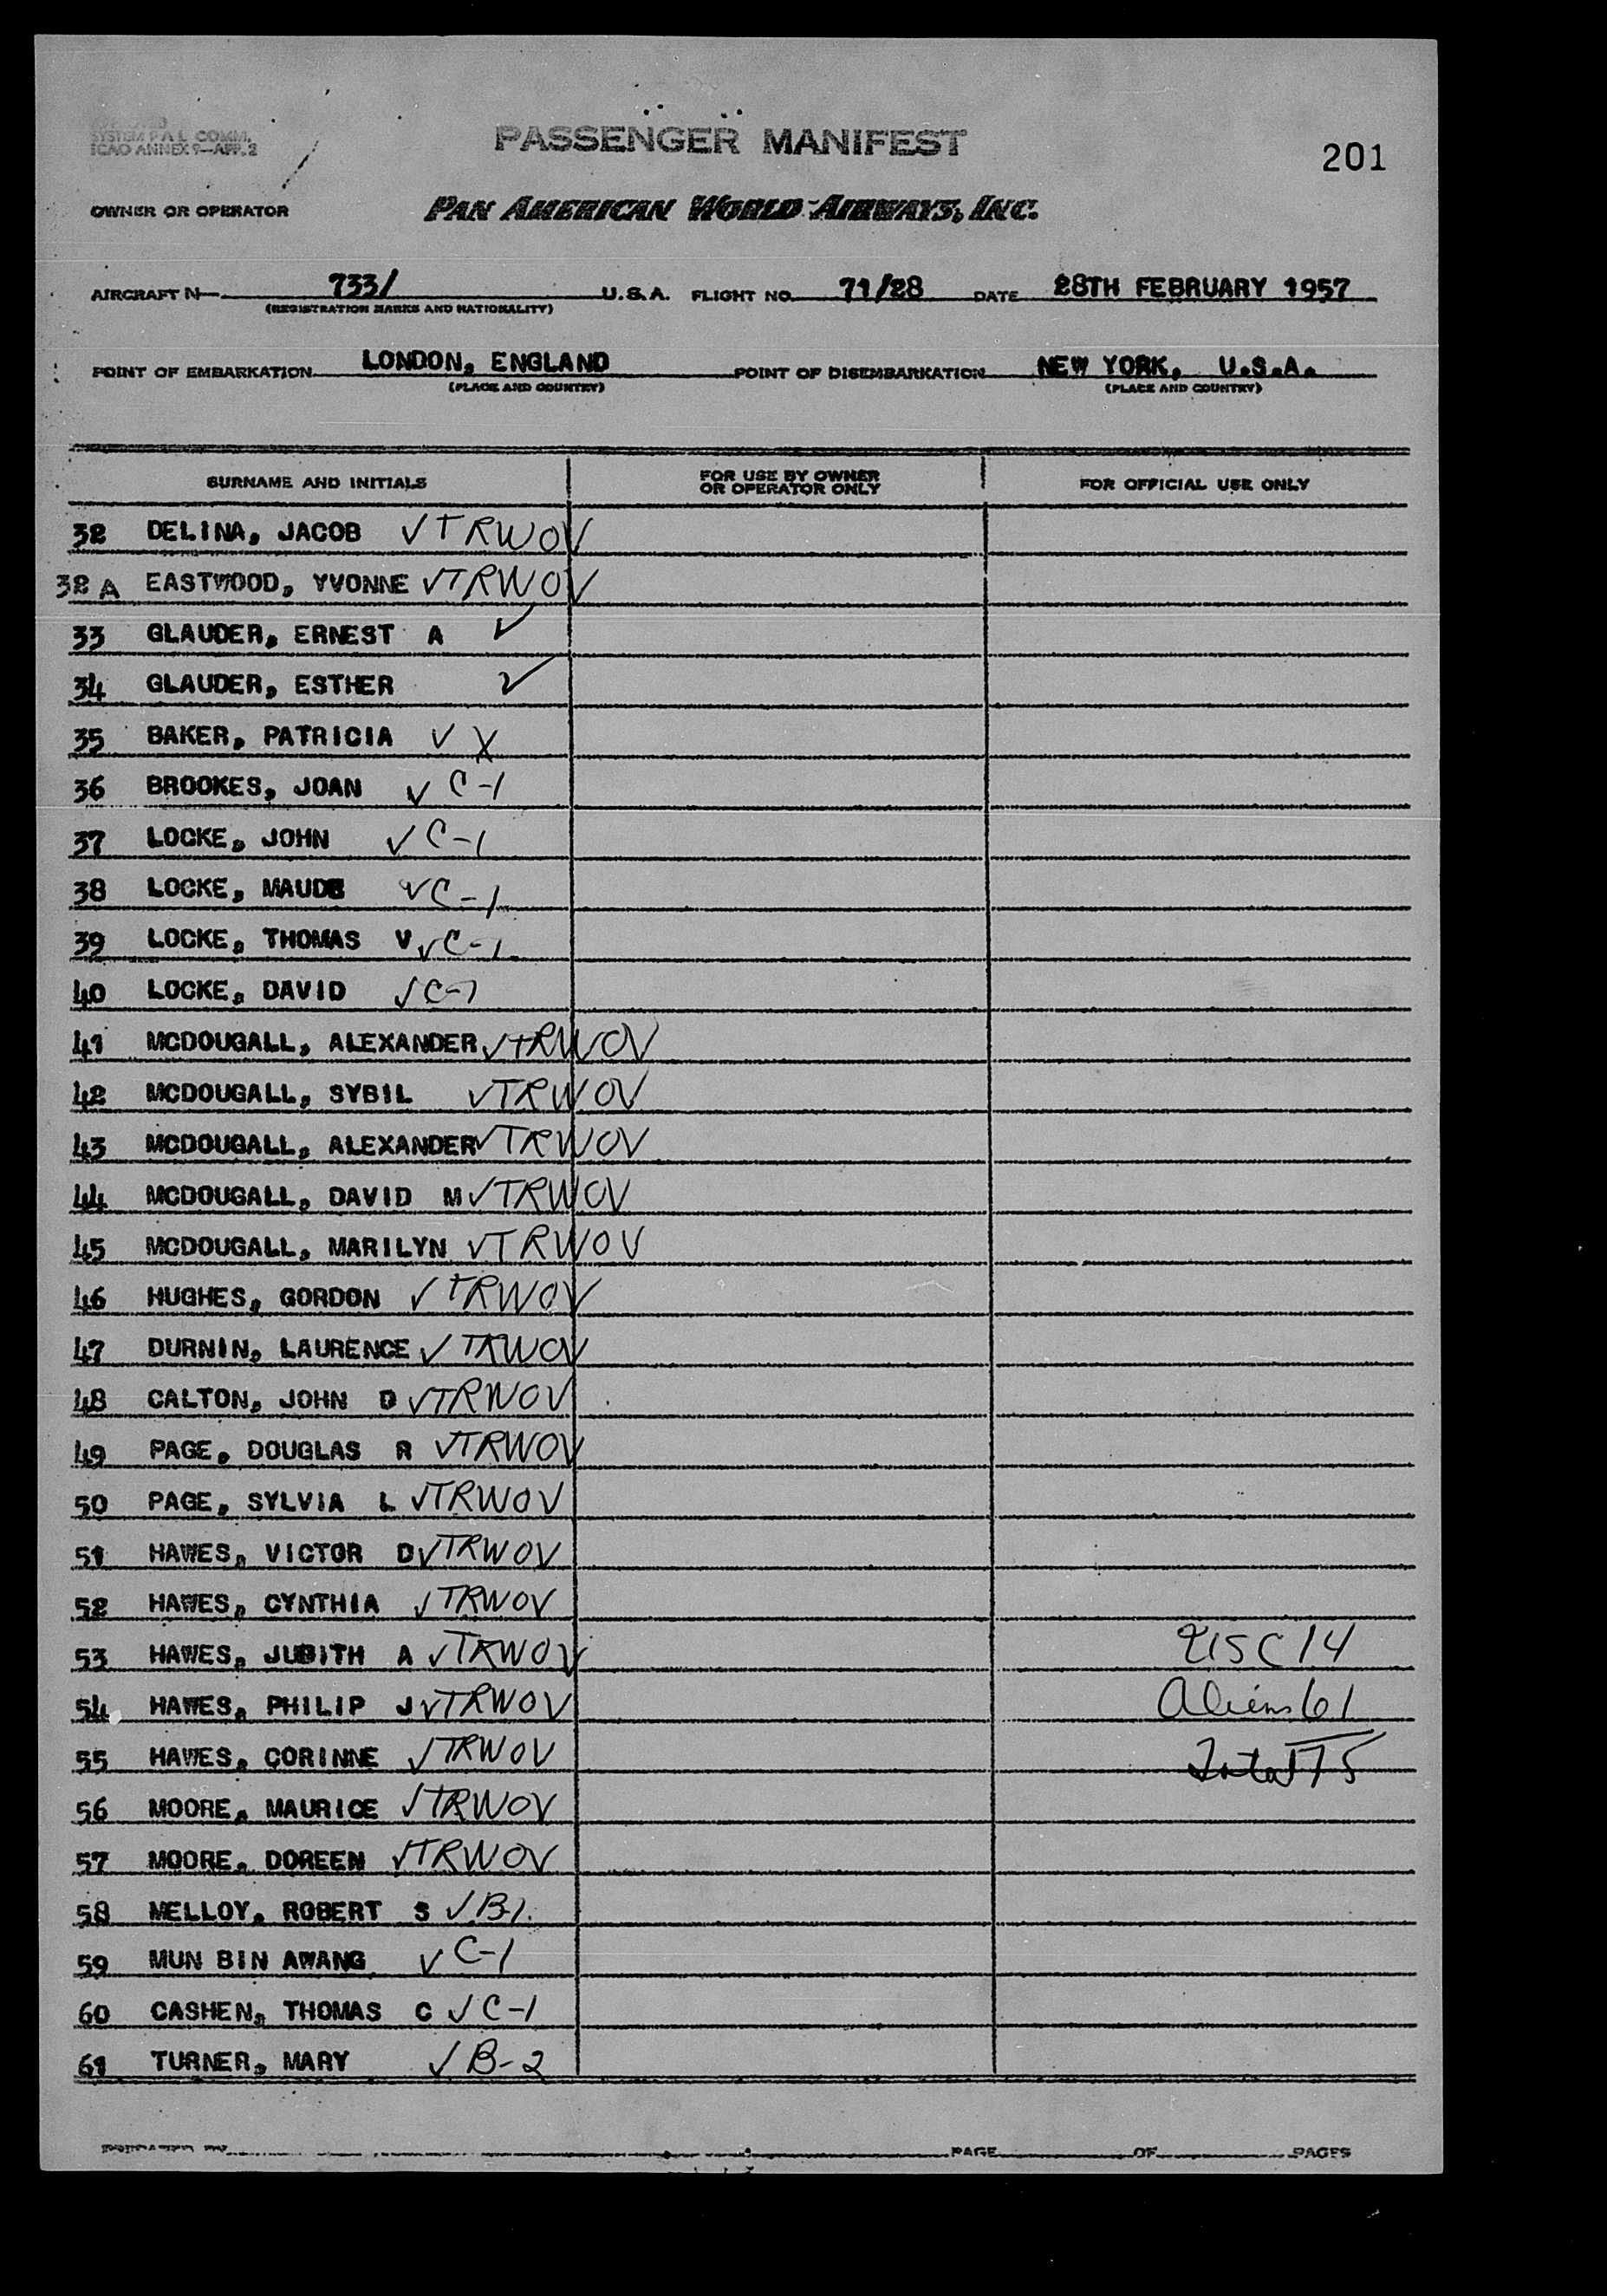 SYSTEM P A L COMM.
ICAO ANNEX 9—APP. 2
PASSENGER MANIFEST
201
OWNER OR OPERATOR PAN AMERICAN WORLD AIRWAYS, INC.
AIRCRAFT N 733/ U.S.A. FLIGHT NO. 71/28 DATE 28TH FEBRUARY 1957
(REGISTRATION MARKS AND NATIONALITY)
POINT OF EMBARKATION LONDON, ENGLAND POINT OF DISEMBARKATION NEW YORK, U.S.A.
(PLACE AND COUNTRY) (PLACE AND COUNTRY)
SURNAME AND INITIALS FOR USE BY OWNER OR OPERATOR ONLY FOR OFFICIAL USE ONLY
32 DELINA, JACOB ✓ TRWOV
32 A EASTWOOD, YVONNE ✓ TRWOV
33 GLAUDER, ERNEST A ✓
34 GLAUDER, ESTHER ✓
35 BAKER, PATRICIA ✓ X
36 BROOKES, JOAN ✓ C-1
37 LOCKE, JOHN ✓ C-1
38 LOCKE, MAUDE ✓ C-1
39 LOCKE, THOMAS V ✓ C-1
40 LOCKE, DAVID ✓ C-1
41 MCDOUGALL, ALEXANDER ✓ TRWOV
42 MCDOUGALL, SYBIL ✓ TRWOV
43 MCDOUGALL, ALEXANDER ✓ TRWOV
44 MCDOUGALL, DAVID M ✓ TRWOV
45 MCDOUGALL, MARILYN ✓ TRWOV
46 HUGHES, GORDON ✓ TRWOV
47 DURNIN, LAURENCE ✓ TRWOV
48 CALTON, JOHN D ✓ TRWOV
49 PAGE, DOUGLAS R ✓ TRWOV
50 PAGE, SYLVIA L ✓ TRWOV
51 HAWES, VICTOR D ✓ TRWOV
52 HAWES, CYNTHIA ✓ TRWOV
53 HAWES, JUDITH A ✓ TRWOV USC 14
54 HAWES, PHILIP J ✓ TRWOV Aliens 61
55 HAWES, CORINNE ✓ TRWOV Total 75
56 MOORE, MAURICE ✓ TRWOV
57 MOORE, DOREEN ✓ TRWOV
58 MELLOY, ROBERT S ✓ B-1
59 MUN BIN AWANG ✓ C-1
60 CASHEN, THOMAS C ✓ C-1
61 TURNER, MARY ✓ B-2
PAGE OF PAGES